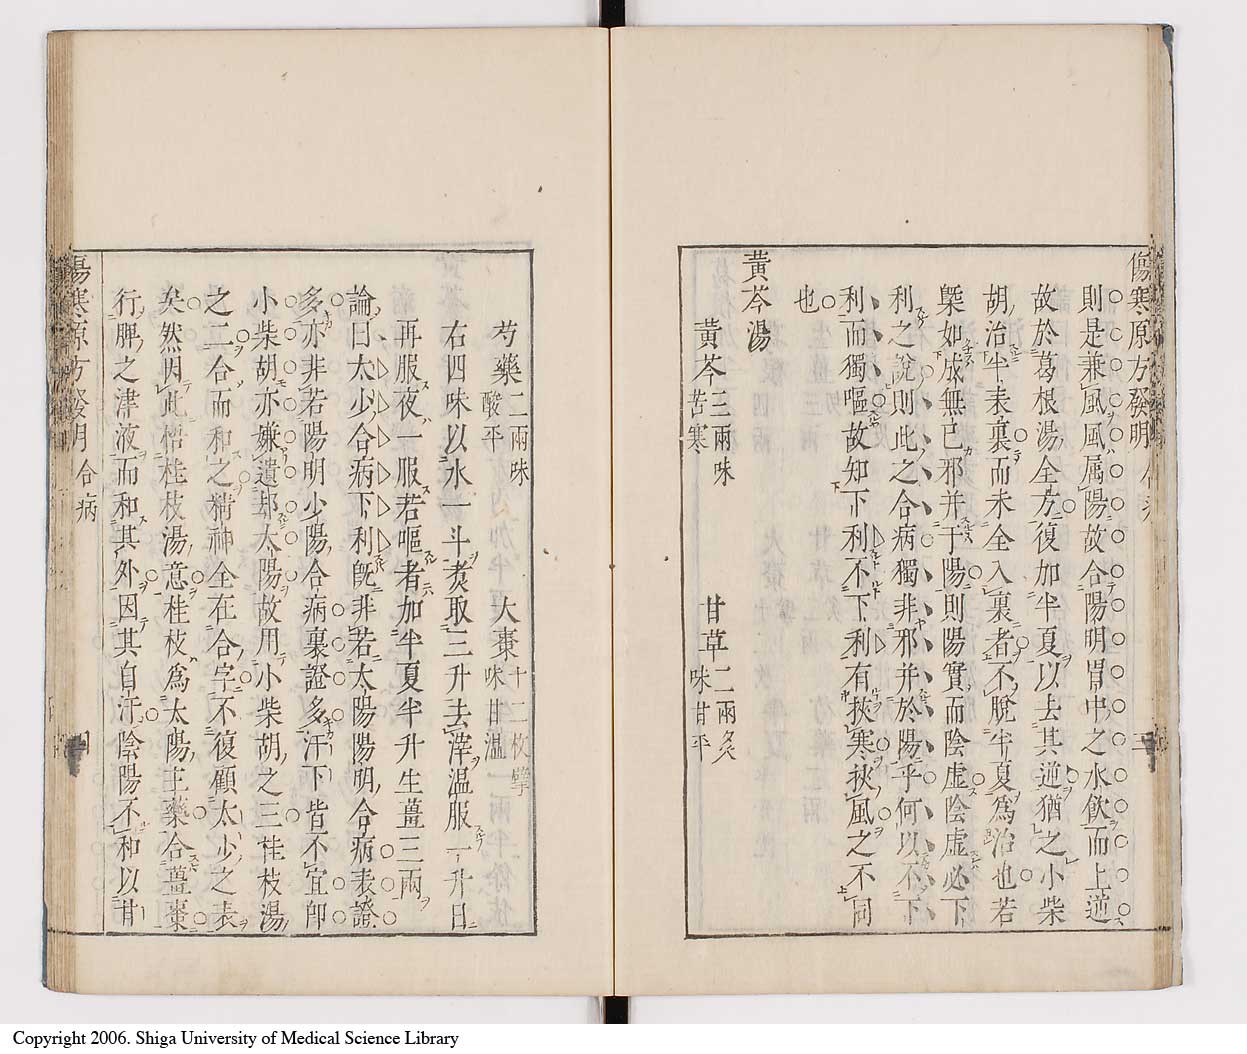 傷寒原方發明
則是兼風風属陽故合陽明胃中之水飲而上逆
故於葛根湯全方復加半夏以去其逆猶之小柴
胡治半表裏而未全入裏者不脱半夏爲治也若
槩如成無己邪并于陽則陽實而陰虚陰虚必下
利之說則此之合病獨非邪并於陽乎何以不下
利而獨嘔故知下利不下利有挾寒挾風之不同
也
黃芩湯
黃芩三兩味苦寒 甘草二兩炙味甘平
芍藥二兩味酸平 大棗十二枚擘味甘温
右四味以水一斗煑取三升去滓温服一升日
再服夜一服若嘔者加半夏半升生薑三兩
論曰太少合病下利旣非若太陽陽明合病表證
多亦非若陽明少陽合病裏證多汗下皆不宜卽
小柴胡亦嫌遺却太陽故用小柴胡之三桂枝湯
之二合而和之精神全在合字不復顧太少之表
矣然因此悟桂枝湯意桂枝爲太陽主藥合薑棗
行脾之津液而和其外因其自汗陰陽不和以甘
傷寒原方發明 合病
Copyright 2006. Shiga University of Medical Science Library